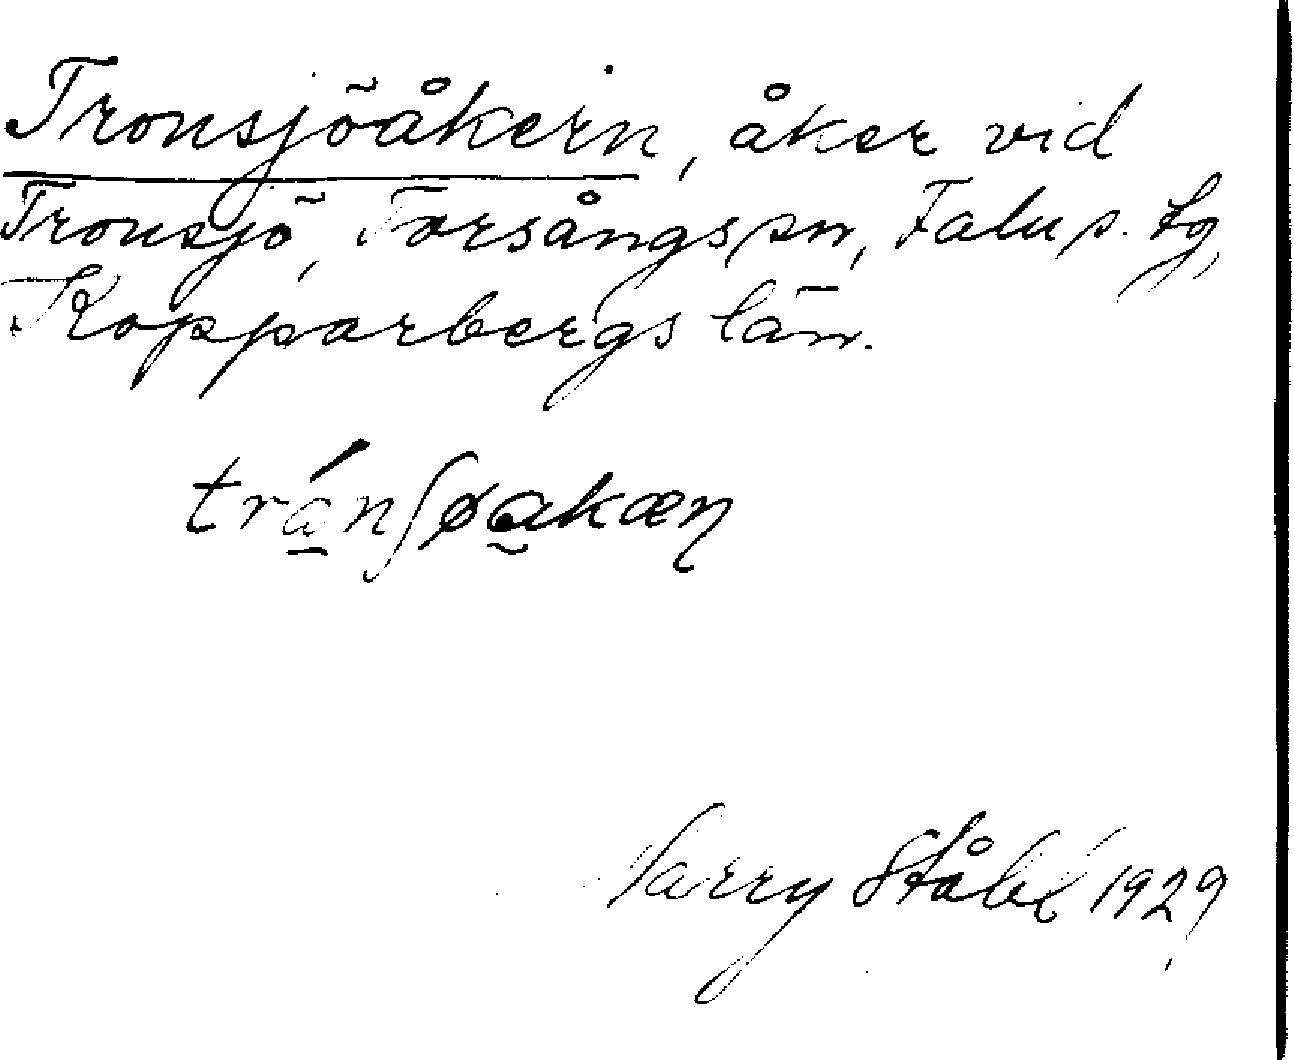 Tronsjöåkern, åker vid
Tronsjö, Torsångs sn, Falu s. tg,
Kopparbergs län.
Harry Ståhl 1929